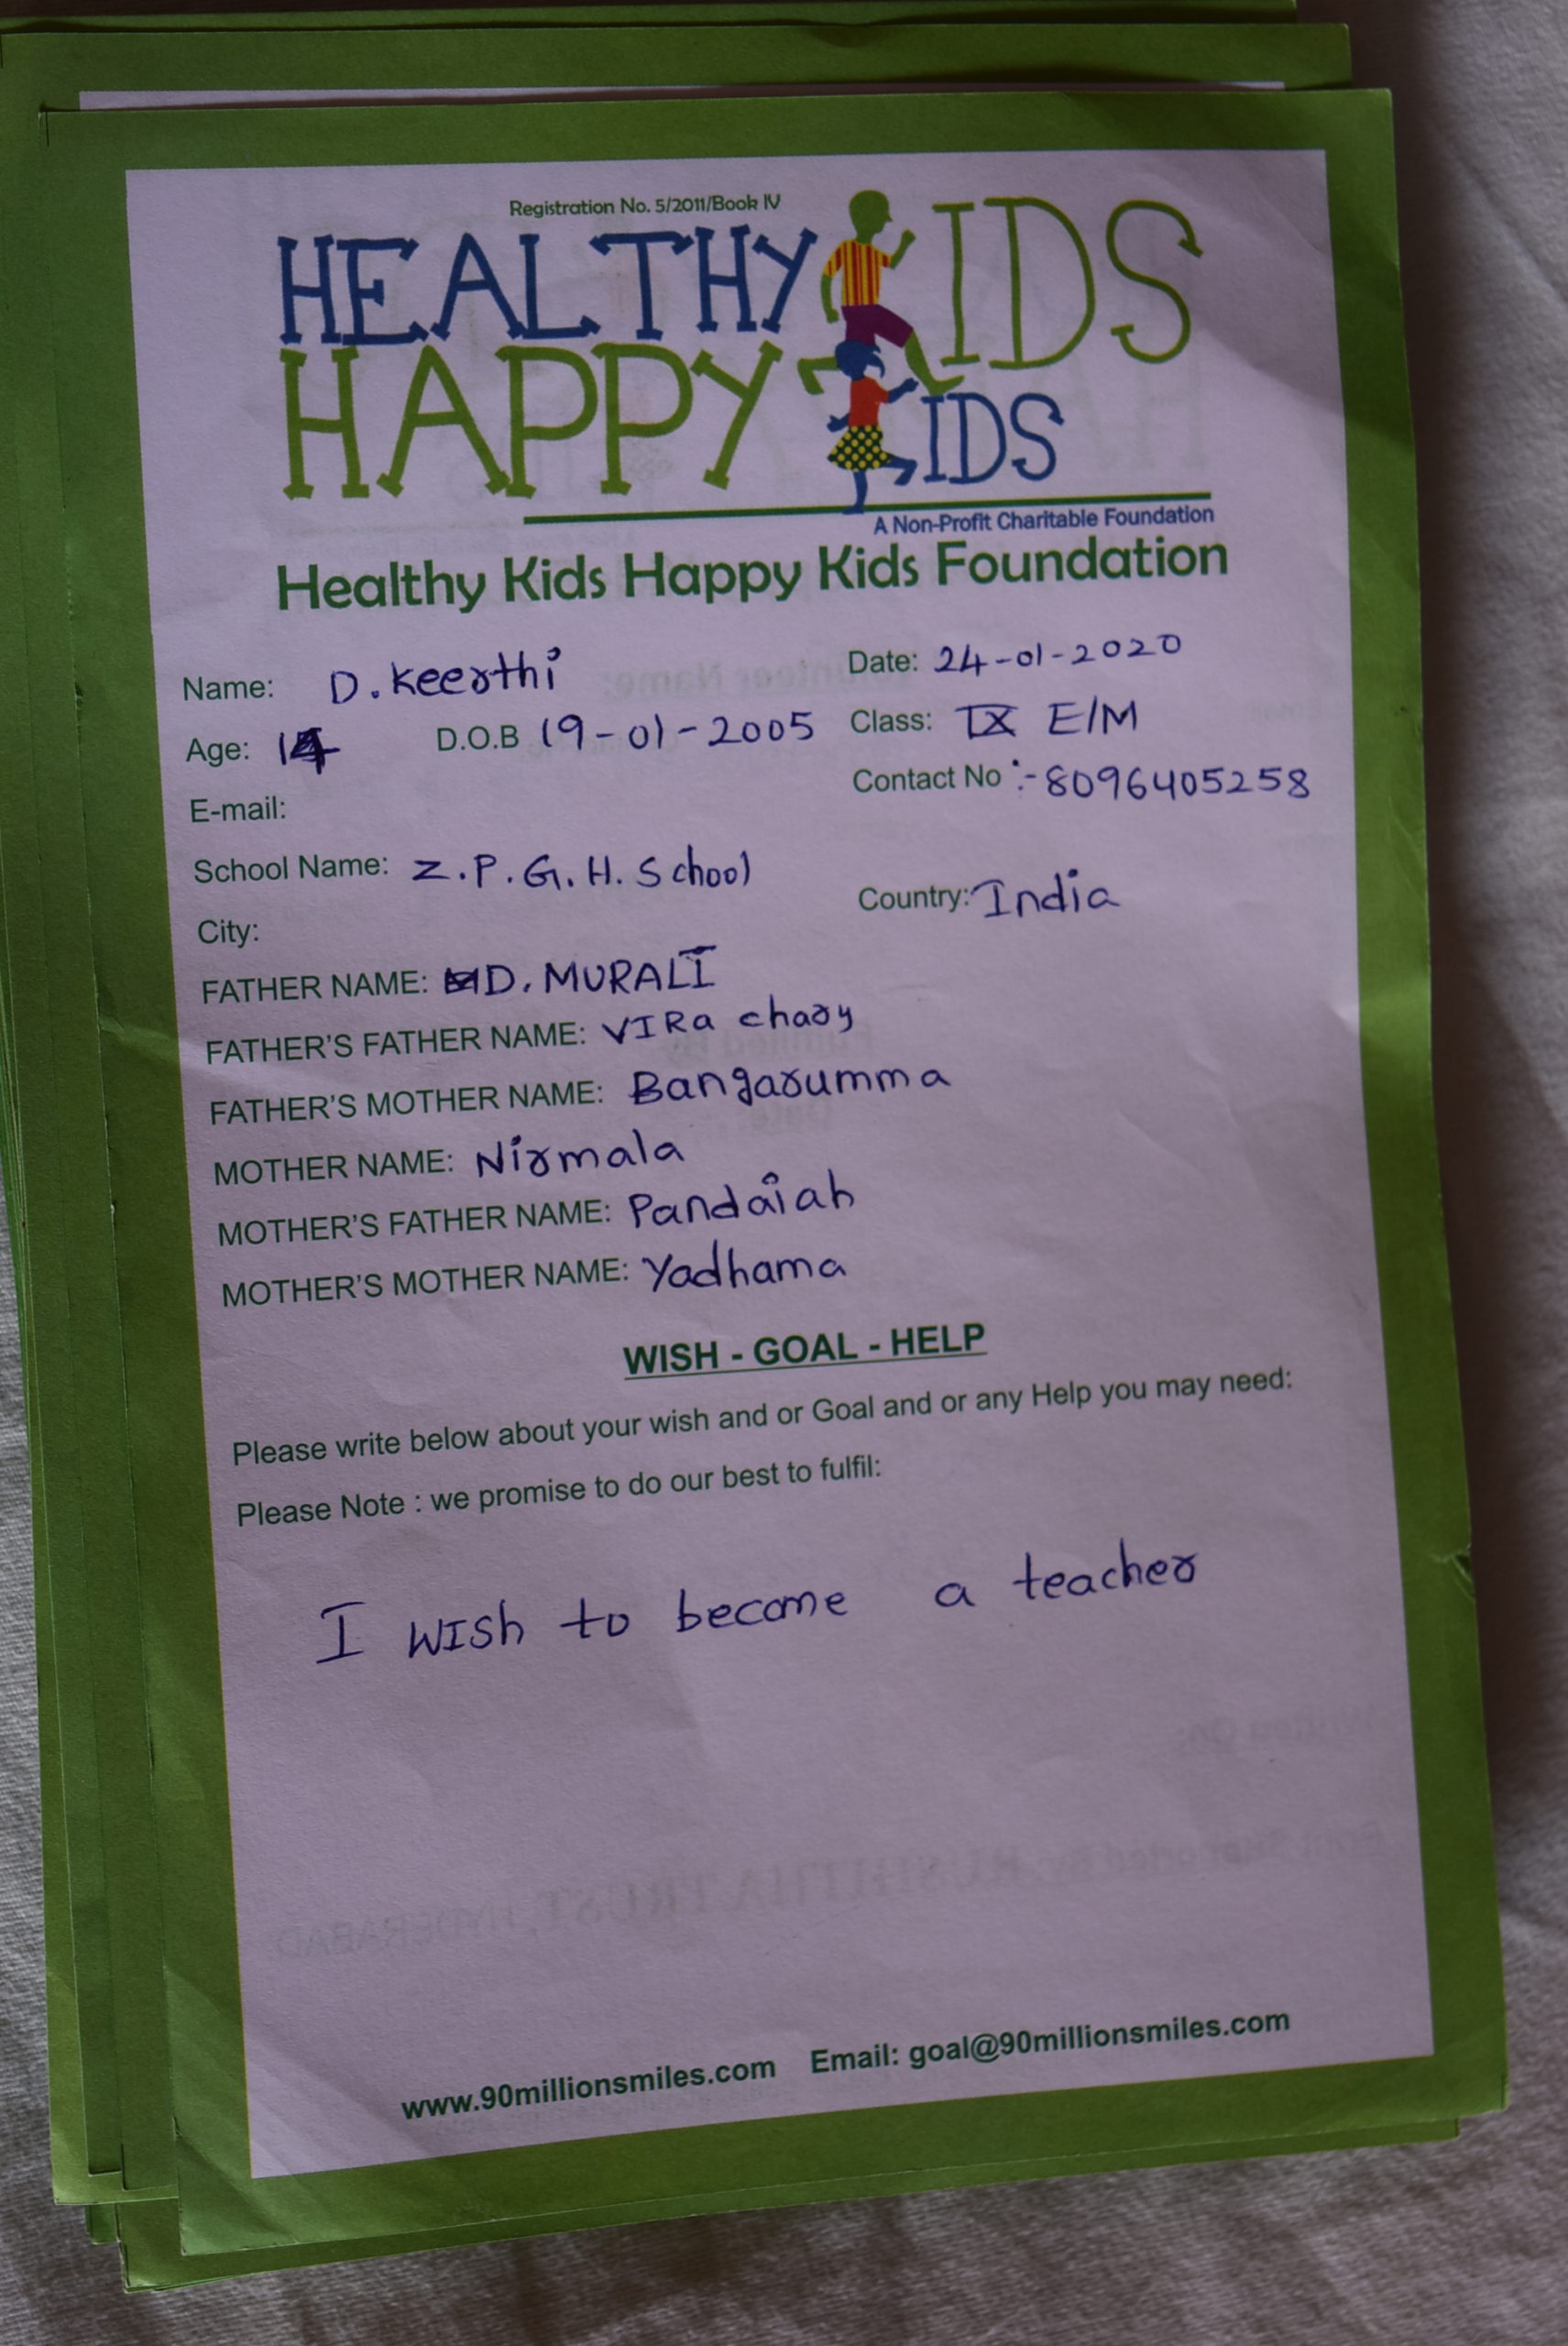 Registration No. 5/2011/Book IV
HEALTHY KIDS
HAPPY KIDS
A Non-Profit Charitable Foundation
Healthy Kids Happy Kids Foundation
Name: D. Keerthi
Date: 24-01-2020
Age: 14 D.O.B 19-01-2005
Class: IX E/M
E-mail:
Contact No :- 8096405258
School Name: Z.P.G.H. School
City:
Country: India
FATHER NAME: D. MURALI
FATHER'S FATHER NAME: VIRa chary
FATHER'S MOTHER NAME: Bangarumma
MOTHER NAME: Nirmala
MOTHER'S FATHER NAME: Pandaiah
MOTHER'S MOTHER NAME: Yadhama
WISH - GOAL - HELP
Please write below about your wish and or Goal and or any Help you may need:
Please Note : we promise to do our best to fulfil:
I WISh to become a teacher
www.90millionsmiles.com Email: goal@90millionsmiles.com